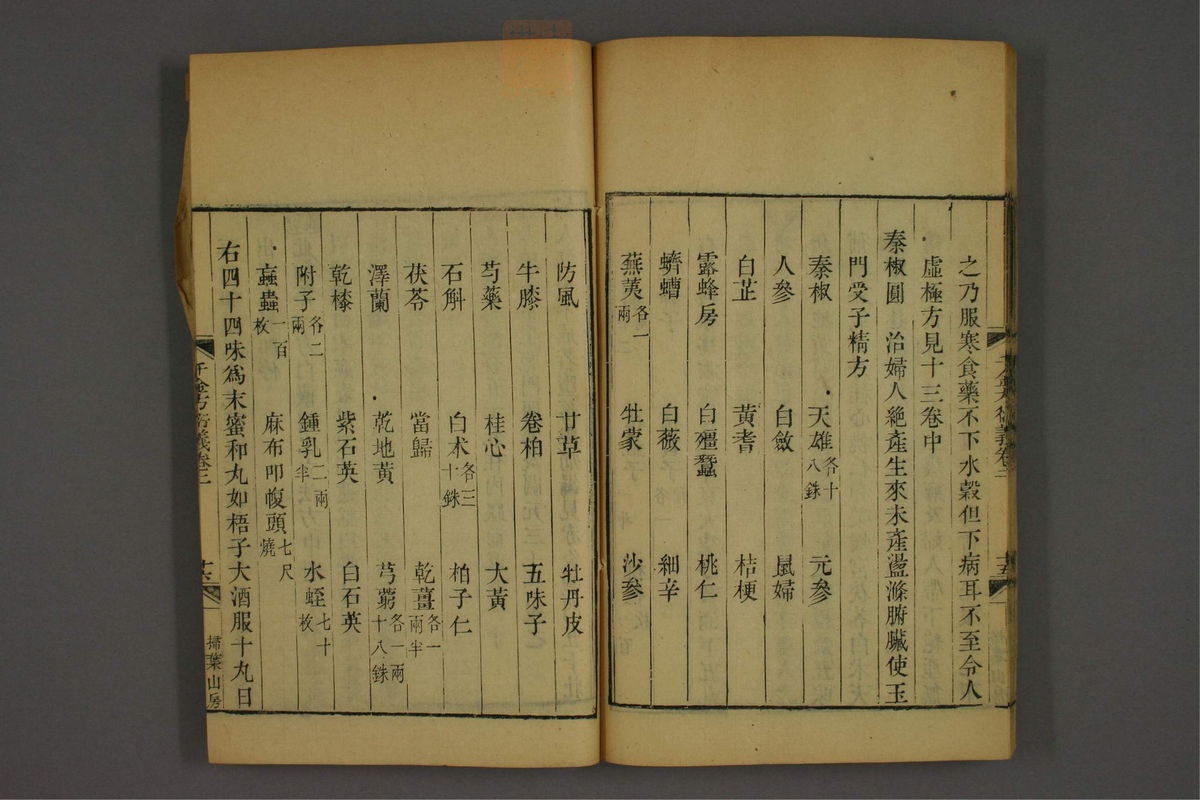 之乃服寒食藥不下水穀但下病耳不至令人
虛極方見十三卷中
秦椒圓 治婦人絶產生來未產盪滌腑臟使玉
門受子精方
秦椒 天雄各十八銖 元參
人參 白斂 鼠婦
白芷 黃耆 桔梗
露蜂房 白殭蠶 桃仁
蠐螬 白薇 細辛
蕪荑各一兩 牡蒙 沙參
防風 甘草 牡丹皮
牛膝 卷柏 五味子
芍藥 桂心 大黃
石斛 白术各三十銖 柏子仁
茯苓 當歸 乾薑各一兩半
澤蘭 乾地黃 芎藭各一兩十八銖
乾㯃 紫石英 白石英
附子各二兩 鍾乳二兩半 水蛭七十枚
蝱蟲一百枚 麻布叩㡓頭七尺燒
右四十四味爲末蜜和丸如梧子大酒服十丸日
千金方衍義卷二
十六
掃葉山房